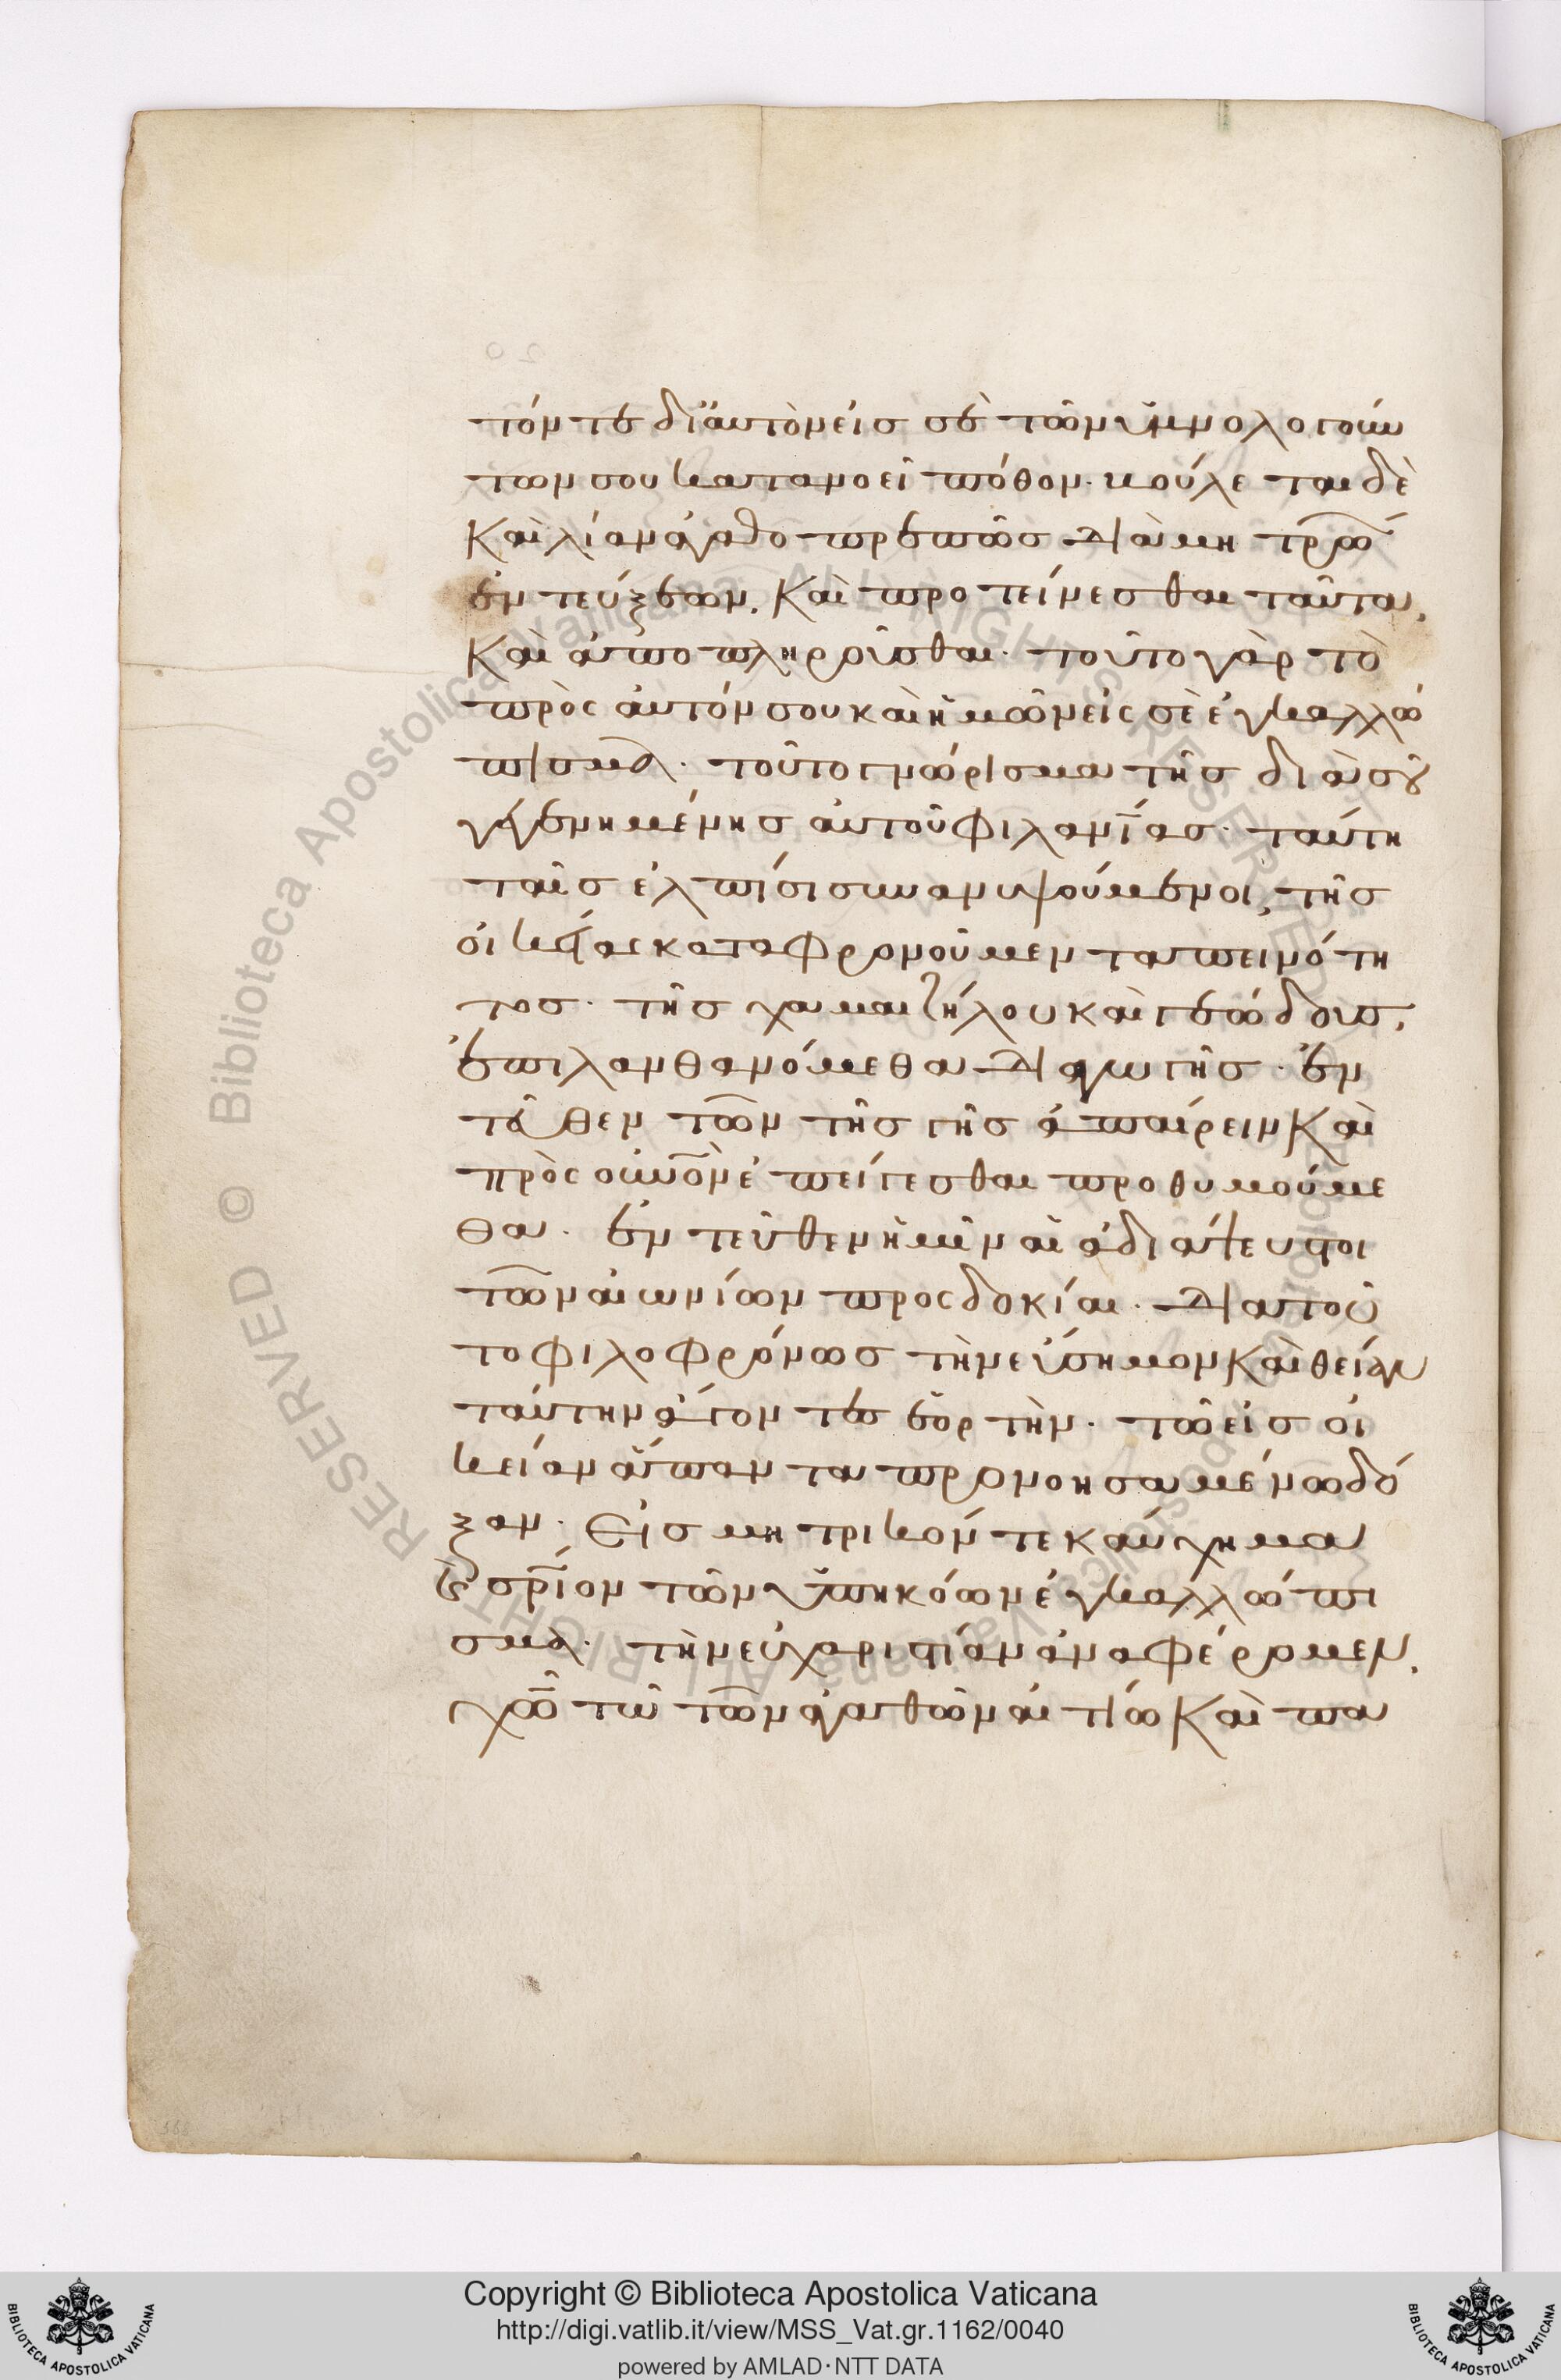 τόν τε δι' αυτὸν εἰς σὲ τῶν ὑμνολογούν
των σου κατανοεῖ πόθον· βούλεται δὲ
καὶ λίαν ἀγαθοπρεπῶς διὰ μητρώων
ἐντεύξεων, καὶ προτείνεσθαι ταῦτα,
καὶ ἀποπληροῦσθαι· τοῦτο γὰρ τὸ
πρὸς αὐτόν σου καὶ ἡμῶν εἰς σὲ ἐγκαλλώ
πισμα· τοῦτο γνώρισμα τῆς διὰ σοῦ
γεγενημένης αὐτοῦ φιλανίας· ταύτη
ταῖς ἐλπίσι συνανυψούμενοι, τῆς
οἰκείας καταφρονοῦμεν ταπεινότη
τος· τῆς χαμαιζήλου καὶ γεώδους,
ἐπιλανθανόμεθα διαγωγῆς· ἐν
τεῦθεν τῶν τῆς γῆς ἀπαίρειν καὶ
πρὸς οὐνὸν ἐπείγεσθαι προθυμούμε
θα· ἐντεῦθεν ἡμῖν αἱ ἀδιάψευστοι
τῶν αἰωνίων προσδοκίαι· διατοῦ
το φιλοφρόνως τὴν εὔσημον καὶ θείαν
ταύτην ἄγοντες ἑορτὴν· τῶ εἰς οἰ
κείαν ἅπαντα προνοησαμένω δό
ξαν· Εἰς μητρικόν τε καύχημα
καὶ σρίον τῶν ὑπηκόων ἐγκαλλώπι
σμα· τὴν εὐχαριστίαν ἀναφέρομεν,
χῶ τῶ τῶν ἀγαθῶν αἰτίω καὶ πα
Copyright © Biblioteca Apostolica Vaticana
http://digi.vatlib.it/view/MSS_Vat.gr.1162/0040
powered by AMLAD·NTT DATA